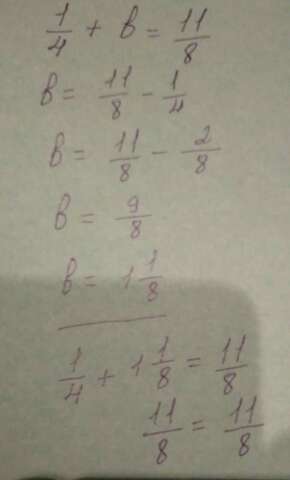 1/4 + в = 11/8
в = 11/8 - 1/4
в = 11/8 - 2/8
в = 9/8
в = 1 1/8
1/4 + 1 1/8 = 11/8
11/8 = 11/8